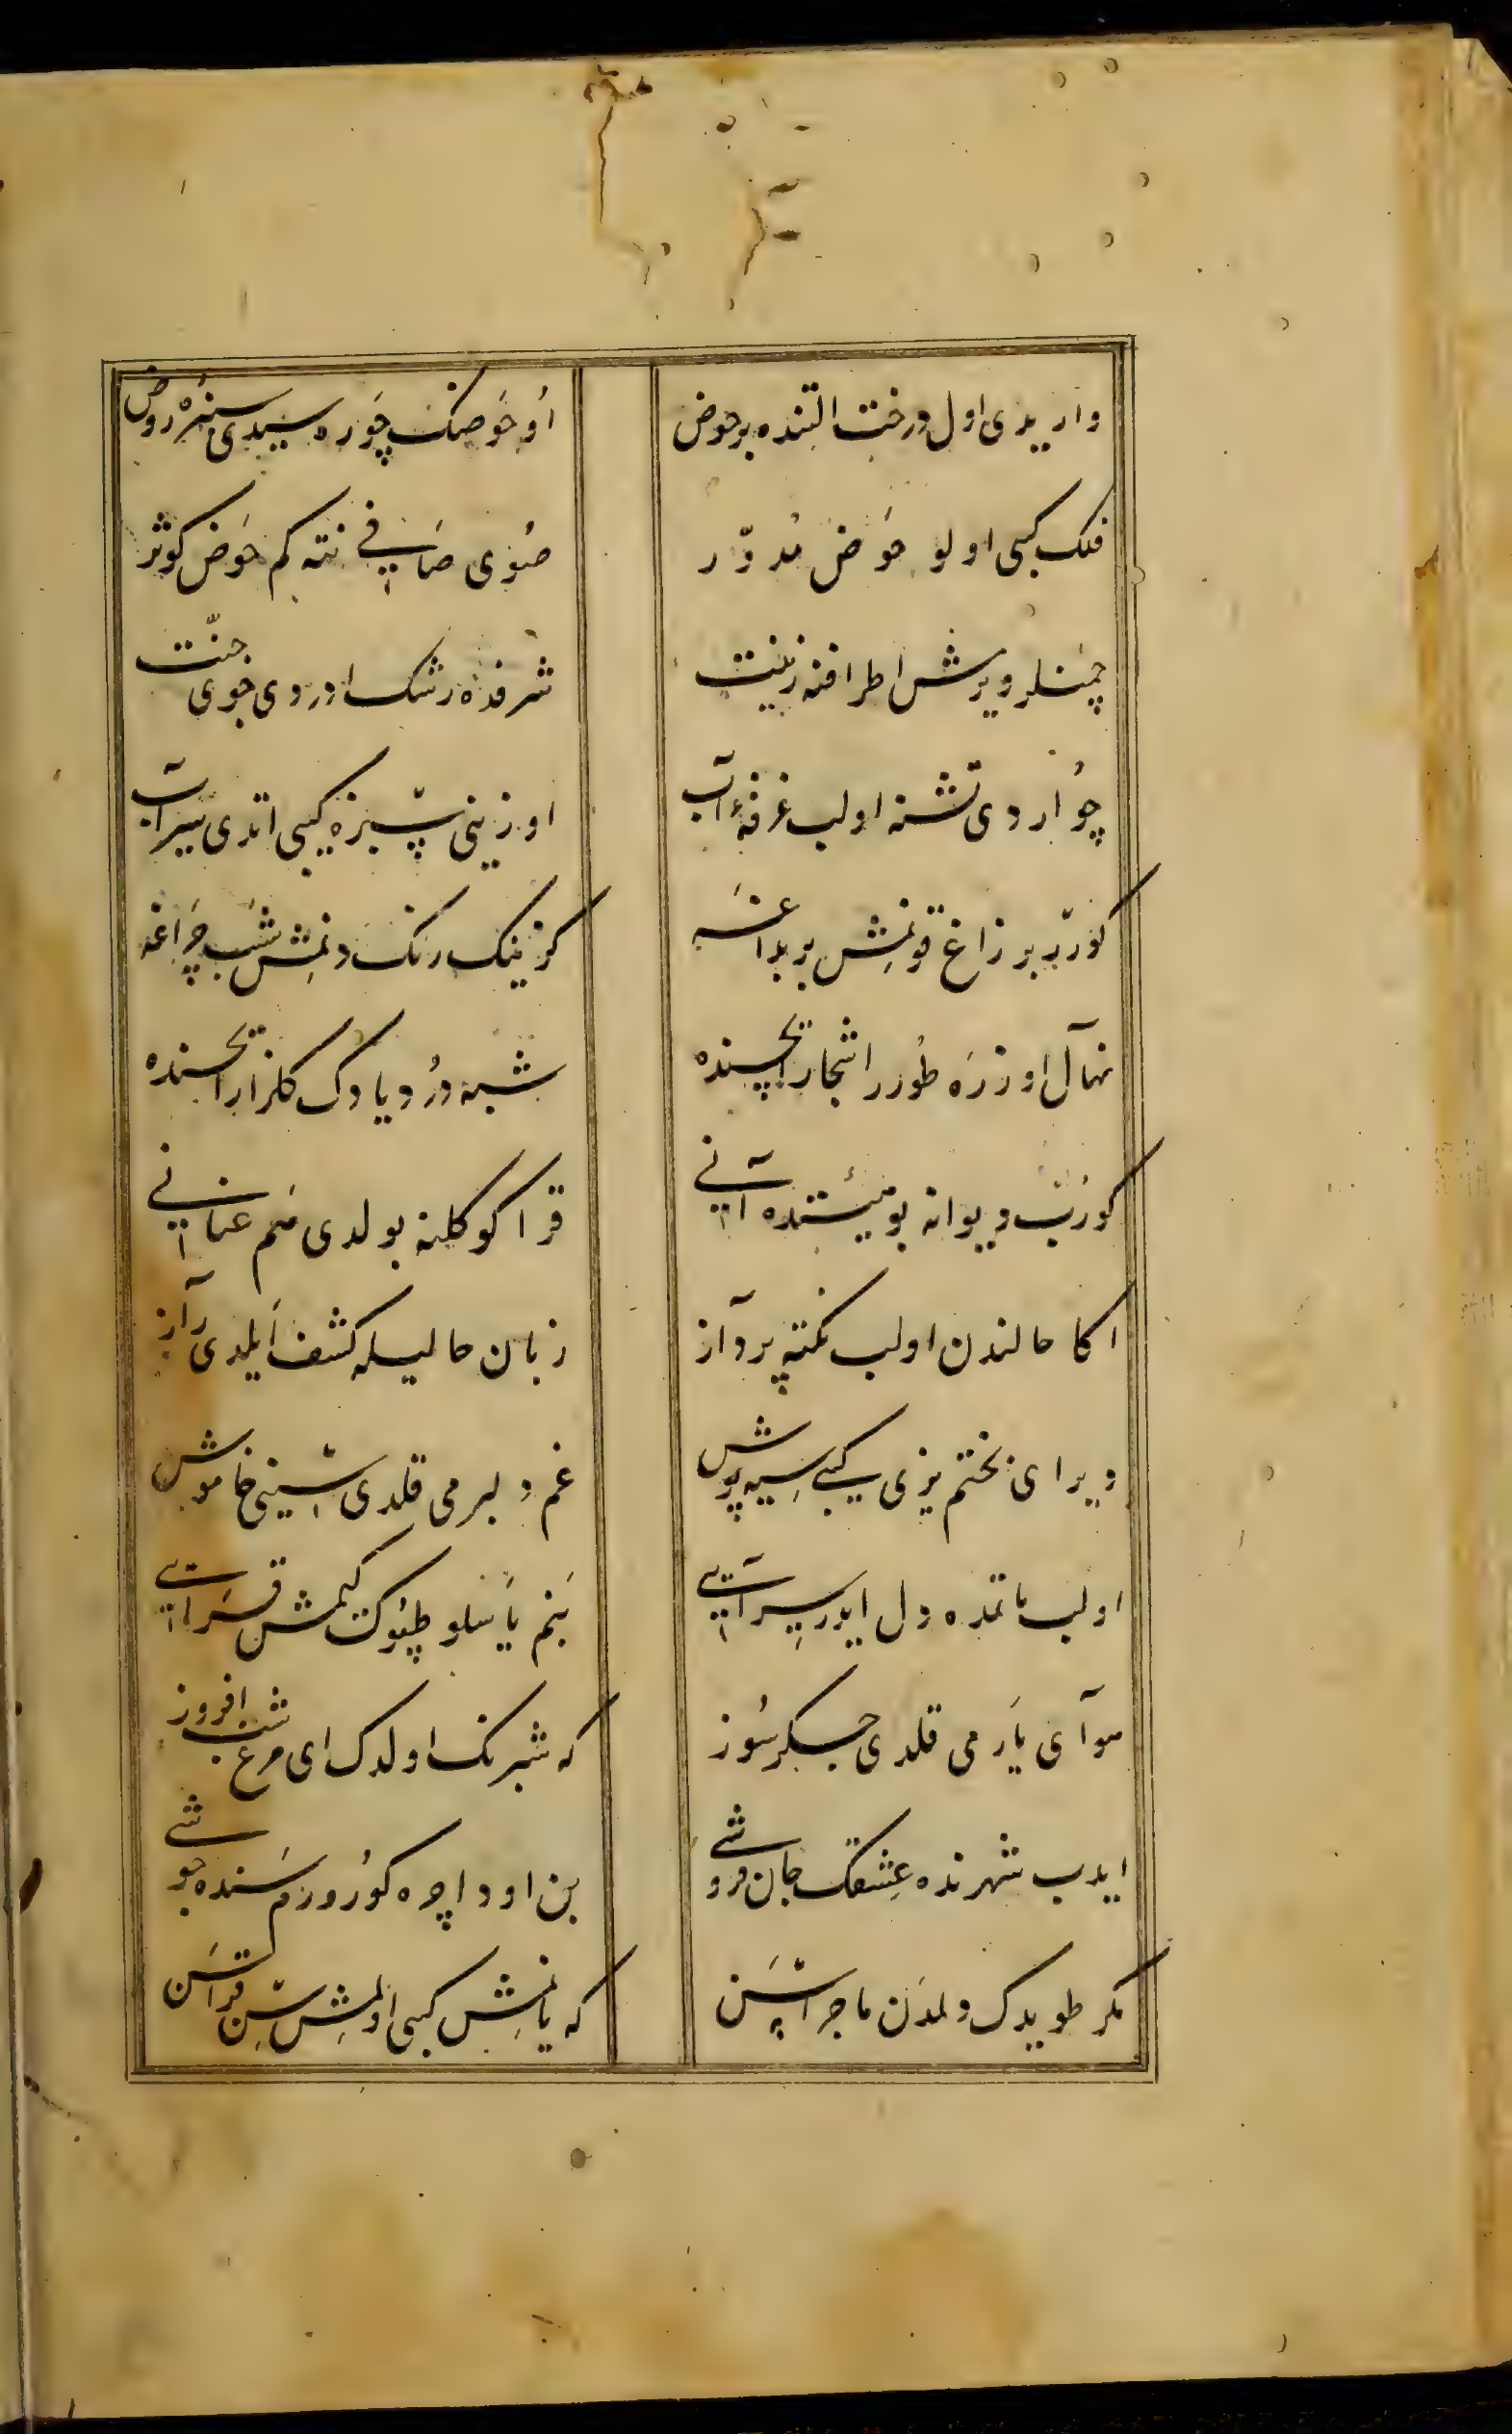 واریدی اول درخت التنده بر حوض
او حوضک چوره سیدی سبزه روض
فلک کبی اولو حوض مدوّر
صوی صافی نته کم حوض کوثر
چمنلر ویرمش اطرافنه زینت
شرفده رشک اوردی جوی جنّت
چو اردی تشنه اولب غرفهٔ آب
اوزینی سبزه کیبی اتدی سیرآب
کورر بر زاغ قونمش بر بداغه
کوزینک رنک دونمش شب چراغه
نهال اوزره طورر اشجار ایچنده
شبه در و یا دک کلزار ایچنده
کورب دیوانه بو میشنده آنی
قرا کوکلنه بولدی هم عنانی
اکا حالندن اولب نکته پرداز
زبان حالیله کشف ایلدی راز
دیر ای بختم یزی کیبی سیه پوش
غم دلبر می قلدی سینی خاموش
اولب ماتمده دل ایدر سرآیی
بنم یاسلو طپوک کیمش قرایی
هوآی یار می قلدی جکر سوز
که شبرنک اولدک ای مرغ شب افروز
ایدب شهرنده عشقک جان فروشی
بن اود ایچره کورورم سنده جوشی
مکر طویدک دلمدن ماجرا سن
که یانمش کبی اولمشسن قرا سن